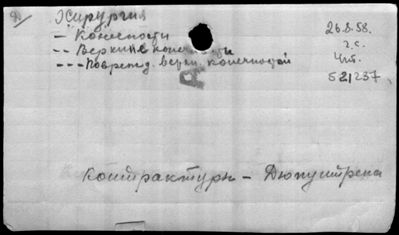 Д) Хирургия
– Конечности
-- Верхние конечности
--- Поврежд. верхн. конечностей
26.8.58.
г.с.
Чит.
521237
Контрактуры – Дюпуитрена